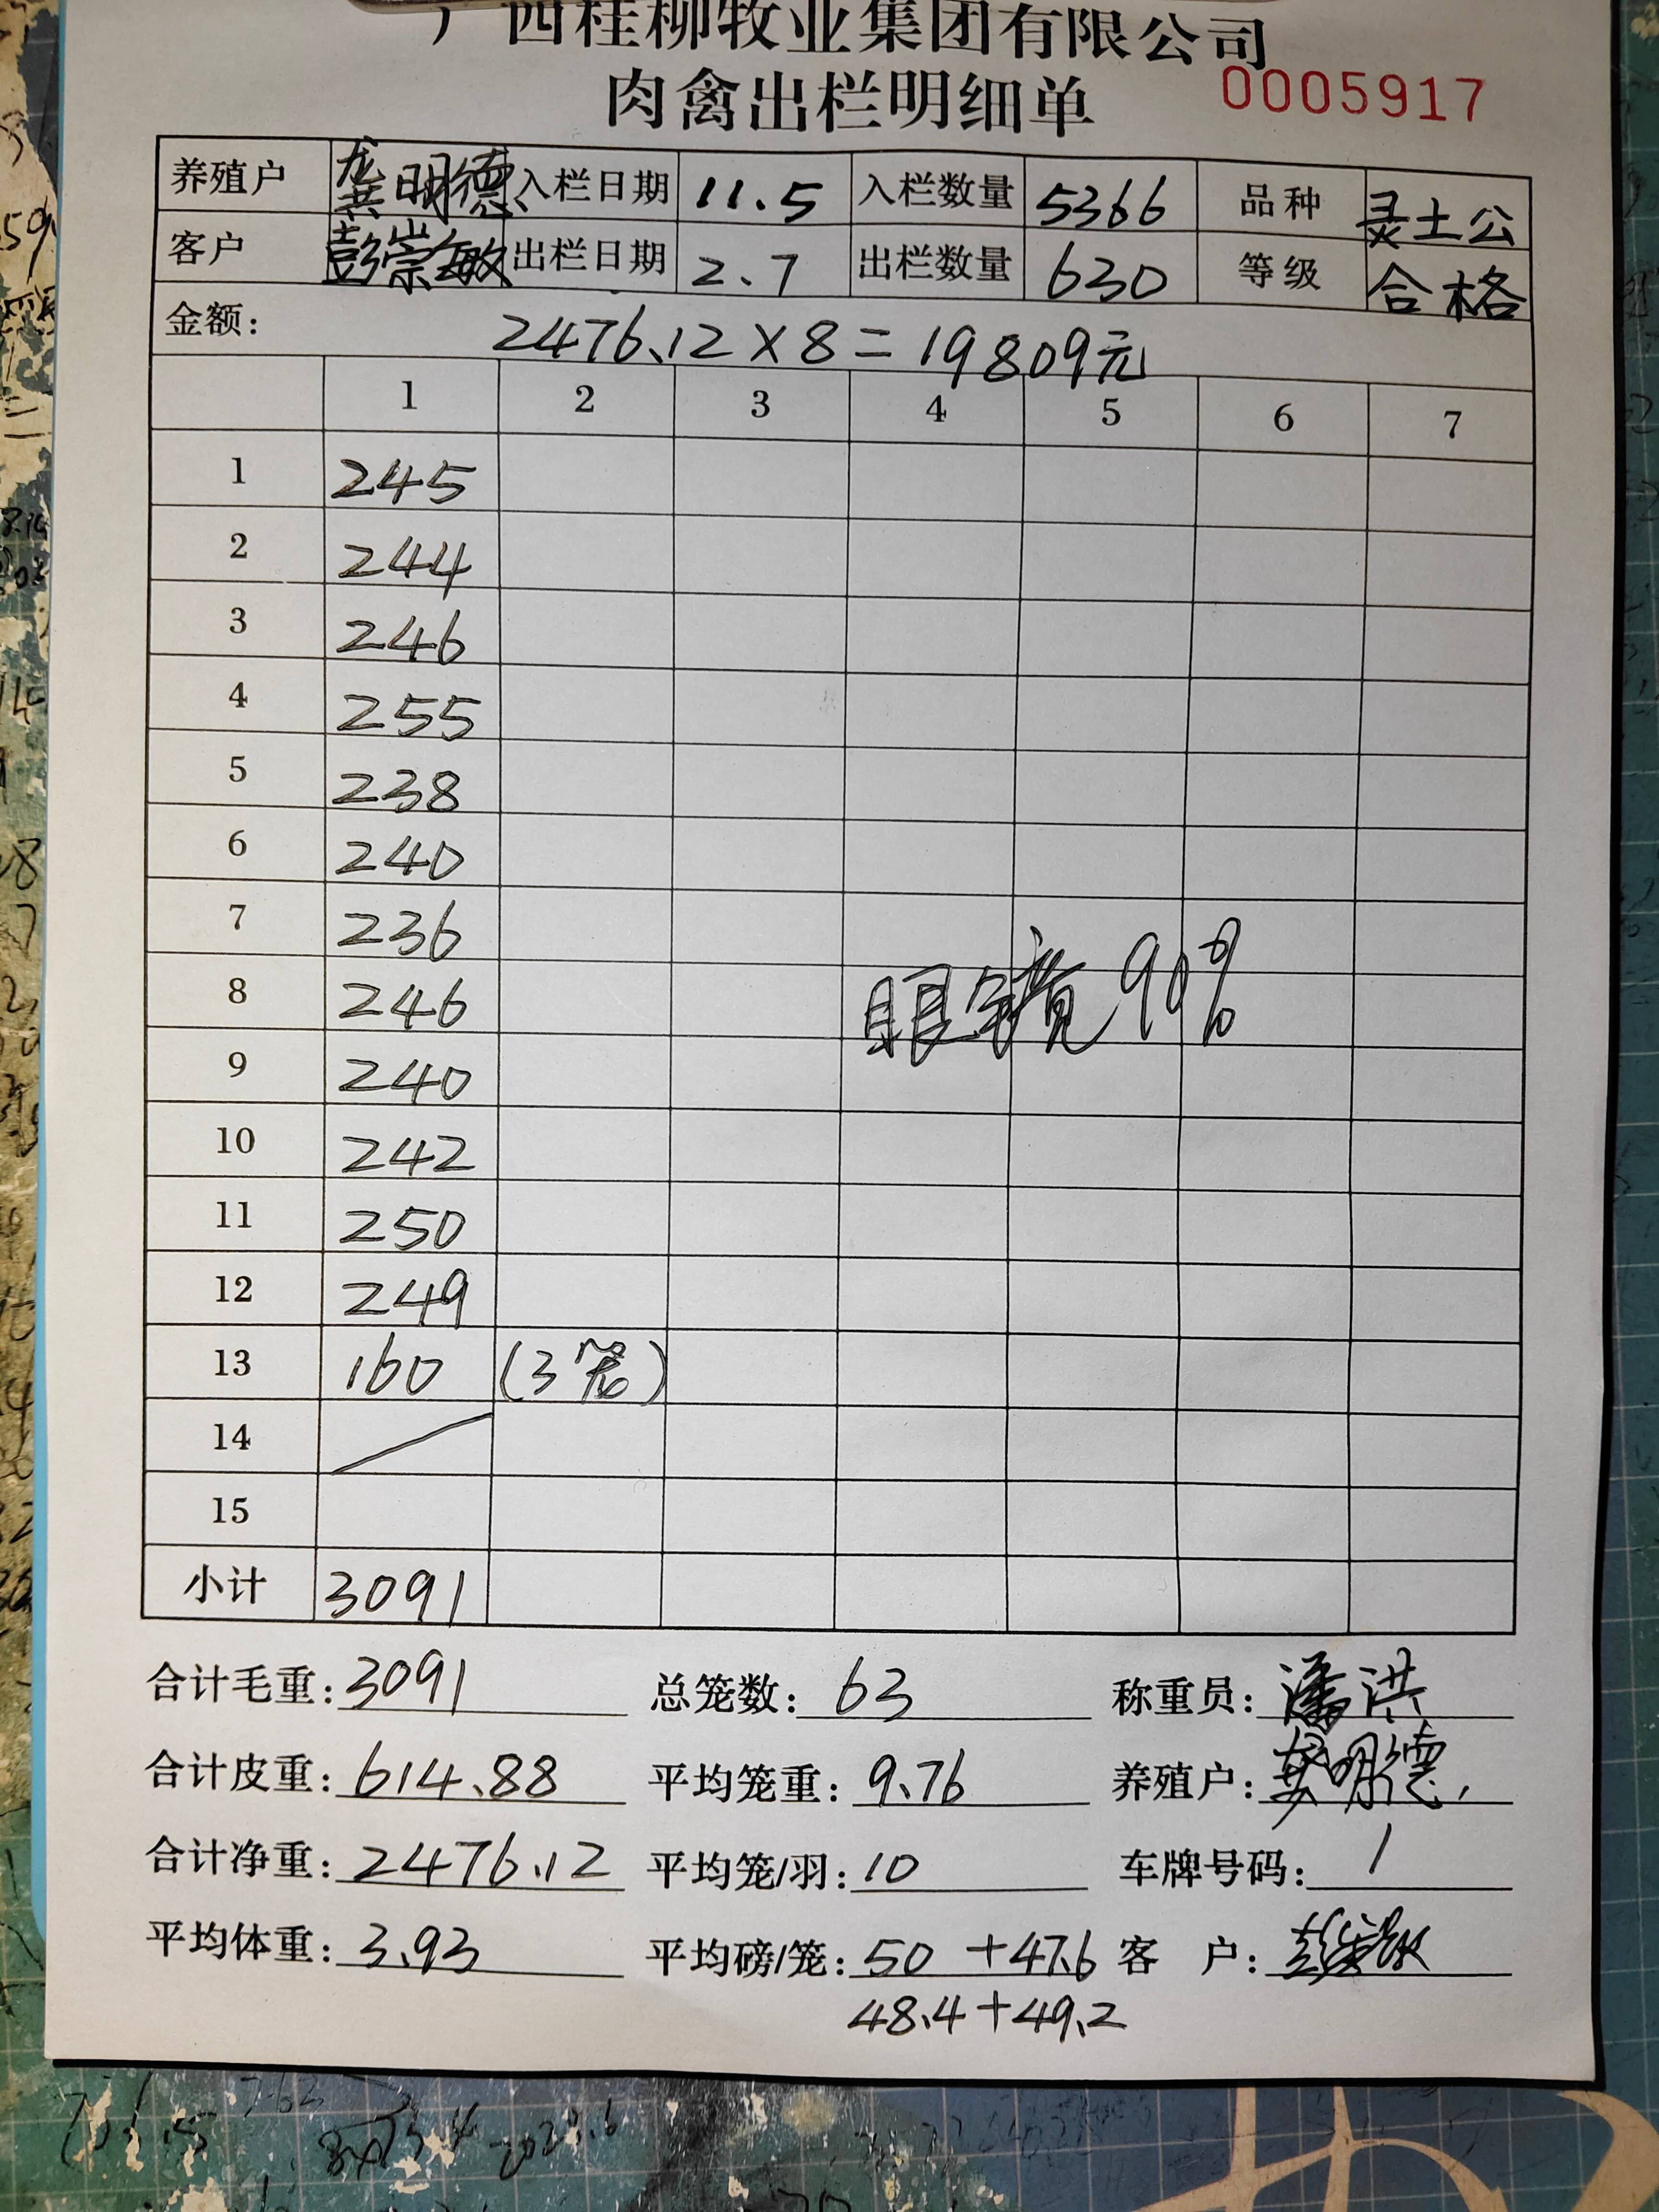 广西桂柳牧业集团有限公司
肉禽出栏明细单 0005917
养殖户 龚明德 入栏日期 11.5 入栏数量 5366 品种 灵土公
客户 彭崇敏 出栏日期 2.7 出栏数量 630 等级 合格
金额: 2476.12×8=19809元
1 2 3 4 5 6 7
1 245
2 244
3 246
4 255
5 238
6 240
7 236
8 246 眼镜90%
9 240
10 242
11 250
12 249
13 160 (3笼)
14
15
小计 3091
合计毛重: 3091 总笼数: 63 称重员: 潘洪
合计皮重: 614.88 平均笼重: 9.76 养殖户: 龚明德
合计净重: 2476.12 平均笼/羽: 10 车牌号码: /
平均体重: 3.93 平均磅/笼: 50 +47.6 客 户: 彭崇敏
48.4+49.2